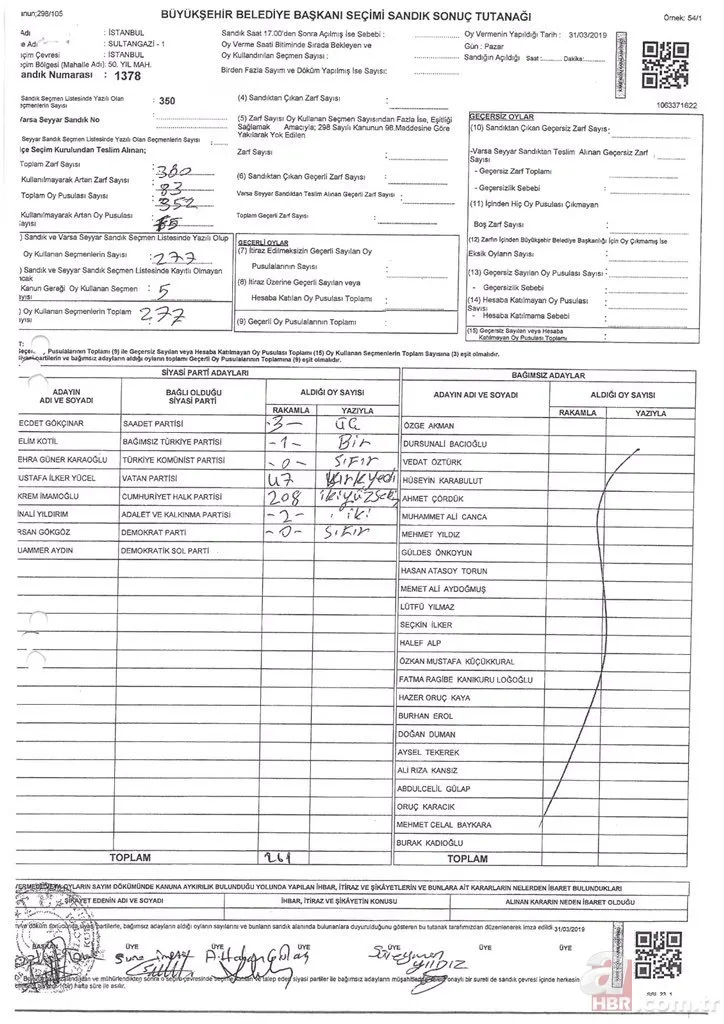 anun;298/105
BÜYÜKŞEHİR BELEDİYE BAŞKANI SEÇİMİ SANDIK SONUÇ TUTANAĞI
Örnek: 54/1
Adı : İSTANBUL
e Adı : SULTANGAZİ - 1
çim Çevresi : İSTANBUL
çim Bölgesi (Mahalle Adı): 50. YIL MAH.
andık Numarası : 1378
Sandık Saat 17.00'den Sonra Açılmış İse Sebebi :
Oy Verme Saati Bitiminde Sırada Bekleyen ve
Oy Kullandırılan Seçmen Sayısı :
Birden Fazla Sayım ve Döküm Yapılmış İse Sayısı:
Oy Vermenin Yapıldığı Tarih : 31/03/2019
Gün : Pazar
Sandığın Açıldığı Saat : Dakika:
1063371622
Sandık Seçmen Listesinde Yazılı Olan
eçmenlerin Sayısı : 350
Varsa Seyyar Sandık No :
Seyyar Seçmen Sandık Listesinde Yazılı Olan Seçmenlerin Sayısı :
İlçe Seçim Kurulundan Teslim Alınan;
Toplam Zarf Sayısı : 360
Kullanılmayarak Artan Zarf Sayısı : 83
Toplam Oy Pusulası Sayısı : 352
Kullanılmayarak Artan Oy Pusulası
Sayısı :
) Sandık ve Varsa Seyyar Sandık Seçmen Listesinde Yazılı Olup
Oy Kullanan Seçmenlerin Sayısı : 277
) Sandık ve Seyyar Sandık Seçmen Listesinde Kayıtlı Olmayan
ncak
Kanun Gereği Oy Kullanan Seçmen : 5
ayısı
) Oy Kullanan Seçmenlerin Toplam : 277
ayısı
(4) Sandıktan Çıkan Zarf Sayısı :
(5) Zarf Sayısı Oy Kullanan Seçmen Sayısından Fazla İse, Eşitliği
Sağlamak Amacıyla; 298 Sayılı Kanunun 98.Maddesine Göre
Yakılarak Yok Edilen
Zarf Sayısı :
(6) Sandıktan Çıkan Geçerli Zarf Sayısı :
Varsa Seyyar Sandıktan Teslim Alınan Geçerli Zarf Sayısı :
Toplam Geçerli Zarf Sayısı :
GEÇERLİ OYLAR
(7) İtiraz Edilmeksizin Geçerli Sayılan Oy
Pusulalarının Sayısı :
(8) İtiraz Üzerine Geçerli Sayılan veya
Hesaba Katılan Oy Pusulaları Toplamı :
(9) Geçerli Oy Pusulalarının Toplamı :
GEÇERSİZ OYLAR
(10) Sandıktan Çıkan Geçersiz Zarf Sayısı :
-Varsa Seyyar Sandıktan Teslim Alınan Geçersiz Zarf :
Sayısı
- Geçersiz Zarf Toplamı :
- Geçersizlik Sebebi :
(11) İçinden Hiç Oy Pusulası Çıkmayan
Boş Zarf Sayısı :
(12) Zarfın İçinden Büyükşehir Belediye Başkanlığı İçin Oy Çıkmamış İse
Eksik Oyların Sayısı :
(13) Geçersiz Sayılan Oy Pusulası Sayısı :
- Geçersizlik Sebebi :
(14) Hesaba Katılmayan Oy Pusulası
Sayısı :
- Hesaba Katılmama Sebebi :
(15) Geçersiz Sayılan veya Hesaba
Katılmayan Oy Pusulası Toplamı :
T:
Pusulalarının Toplamı (9) ile Geçersiz Sayılan veya Hesaba Katılmayan Oy Pusulası Toplamı (15) Oy Kullanan Seçmenlerin Toplam Sayısına (3) eşit olmalıdır.
partilerin ve bağımsız adayların aldığı oyların toplamı Geçerli Oy Pusulalarının Toplamına (9) eşit olmalıdır.
SİYASİ PARTİ ADAYLARI
BAĞIMSIZ ADAYLAR
ADAYIN ADI VE SOYADI
BAĞLI OLDUĞU SİYASİ PARTİ
ALDIĞI OY SAYISI
RAKAMLA YAZIYLA
ADAYIN ADI VE SOYADI
ALDIĞI OY SAYISI
RAKAMLA YAZIYLA
ECDET GÖKÇINAR SAADET PARTİSİ -3- üç
ELİM KOTİL BAĞIMSIZ TÜRKİYE PARTİSİ -1- Bir
EHRA GÜNER KARAOĞLU TÜRKİYE KOMÜNİST PARTİSİ -0- Sıfır
USTAFA İLKER YÜCEL VATAN PARTİSİ 47 Kırkyedi
KREM İMAMOĞLU CUMHURİYET HALK PARTİSİ 208 ikiyüzsekiz
INALİ YILDIRIM ADALET VE KALKINMA PARTİSİ -2- iki
RSAN GÖKGÖZ DEMOKRAT PARTİ -0- Sıfır
UAMMER AYDIN DEMOKRATİK SOL PARTİ
ÖZGE AKMAN
DURSUNALİ BACIOĞLU
VEDAT ÖZTÜRK
HÜSEYİN KARABULUT
AHMET ÇÖRDÜK
MUHAMMET ALİ CANCA
MEHMET YILDIZ
GÜLDES ÖNKOYUN
HASAN ATASOY TORUN
MEMET ALİ AYDOĞMUŞ
LÜTFÜ YILMAZ
SEÇKİN İLKER
HALEF ALP
ÖZKAN MUSTAFA KÜÇÜKKURAL
FATMA RAGİBE KANIKURU LOĞOĞLU
HAZER ORUÇ KAYA
BURHAN EROL
DOĞAN DUMAN
AYSEL TEKEREK
ALİ RIZA KANSIZ
ABDULCELİL GÜLAP
ORUÇ KARACIK
MEHMET CELAL BAYKARA
BURAK KADIOĞLU
TOPLAM 261
TOPLAM
OYLARIN SAYIM DÖKÜMÜNDE KANUNA AYKIRILIK BULUNDUĞU YOLUNDA YAPILAN İHBAR, İTİRAZ VE ŞİKÂYETLERİN VE BUNLARA AİT KARARLARIN NELERDEN İBARET BULUNDUKLARI
ŞİKAYET EDENİN ADI VE SOYADI
İHBAR, İTİRAZ VE ŞİKÂYETİN KONUSU
ALINAN KARARIN NEDEN İBARET OLDUĞU
partilerle, bağımsız adayların aldığı oyların sayılarını ve bunların sandık alanında bulunanlara duyurulduğunu gösteren bu tutanak tarafımızdan düzenlenerek imza edildi. 31/03/2019
BAŞKAN ÜYE ÜYE ÜYE ÜYE ÜYE
Süleyman YILDIZ
a
HBR.com.tr